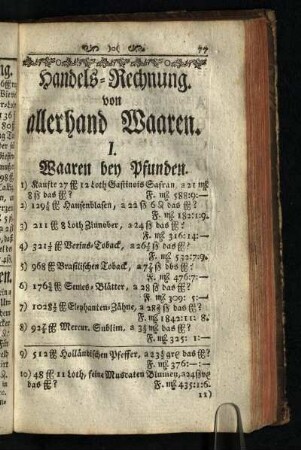 77
Handels-Rechnung.
von
allerhand Waaren.
I.
Waaren bey Pfunden.
1) Kaufte 27 ℔ 12 Loth Gastinois Safran, a 21 m₰
8 ß das ℔? F. m₰ 588:9:—
2) 129¼ ℔ Hausenblasen, a 22 ß 6 ₰ das ℔?
F. m₰ 182:1:9.
3) 211 ℔ 8 Loth Zinnober, a 24 ß das ℔?
F. m₰ 316:14:—
4) 321½ ℔ Verins-Toback, a 26½ ß das ℔?
F. m₰ 532:7:9.
5) 968 ℔ Brasilischen Toback, a 7⅞ ß das ℔?
F. m₰ 476:7:—
6) 176¼ ℔ Senes-Blätter, a 28 ß das ℔?
F. m₰ 309: 5:—
7) 1028¼ ℔ Elephanten-Zähne, a 28 ß das ℔?
F. m₰ 1842:11:8.
8) 92¾ ℔ Mercur. Sublim. a 3½ m₰ das ℔?
F. m₰ 325: 1:—
9) 512 ℔ Holländischen Pfeffer, a 23½ grq das ℔?
F. m₰ 376:—:—
10) 48 ℔ 11 Loth, feine Muscaten Blumen, a 24 ßvq
das ℔? F. m₰ 435:1:6.
11)